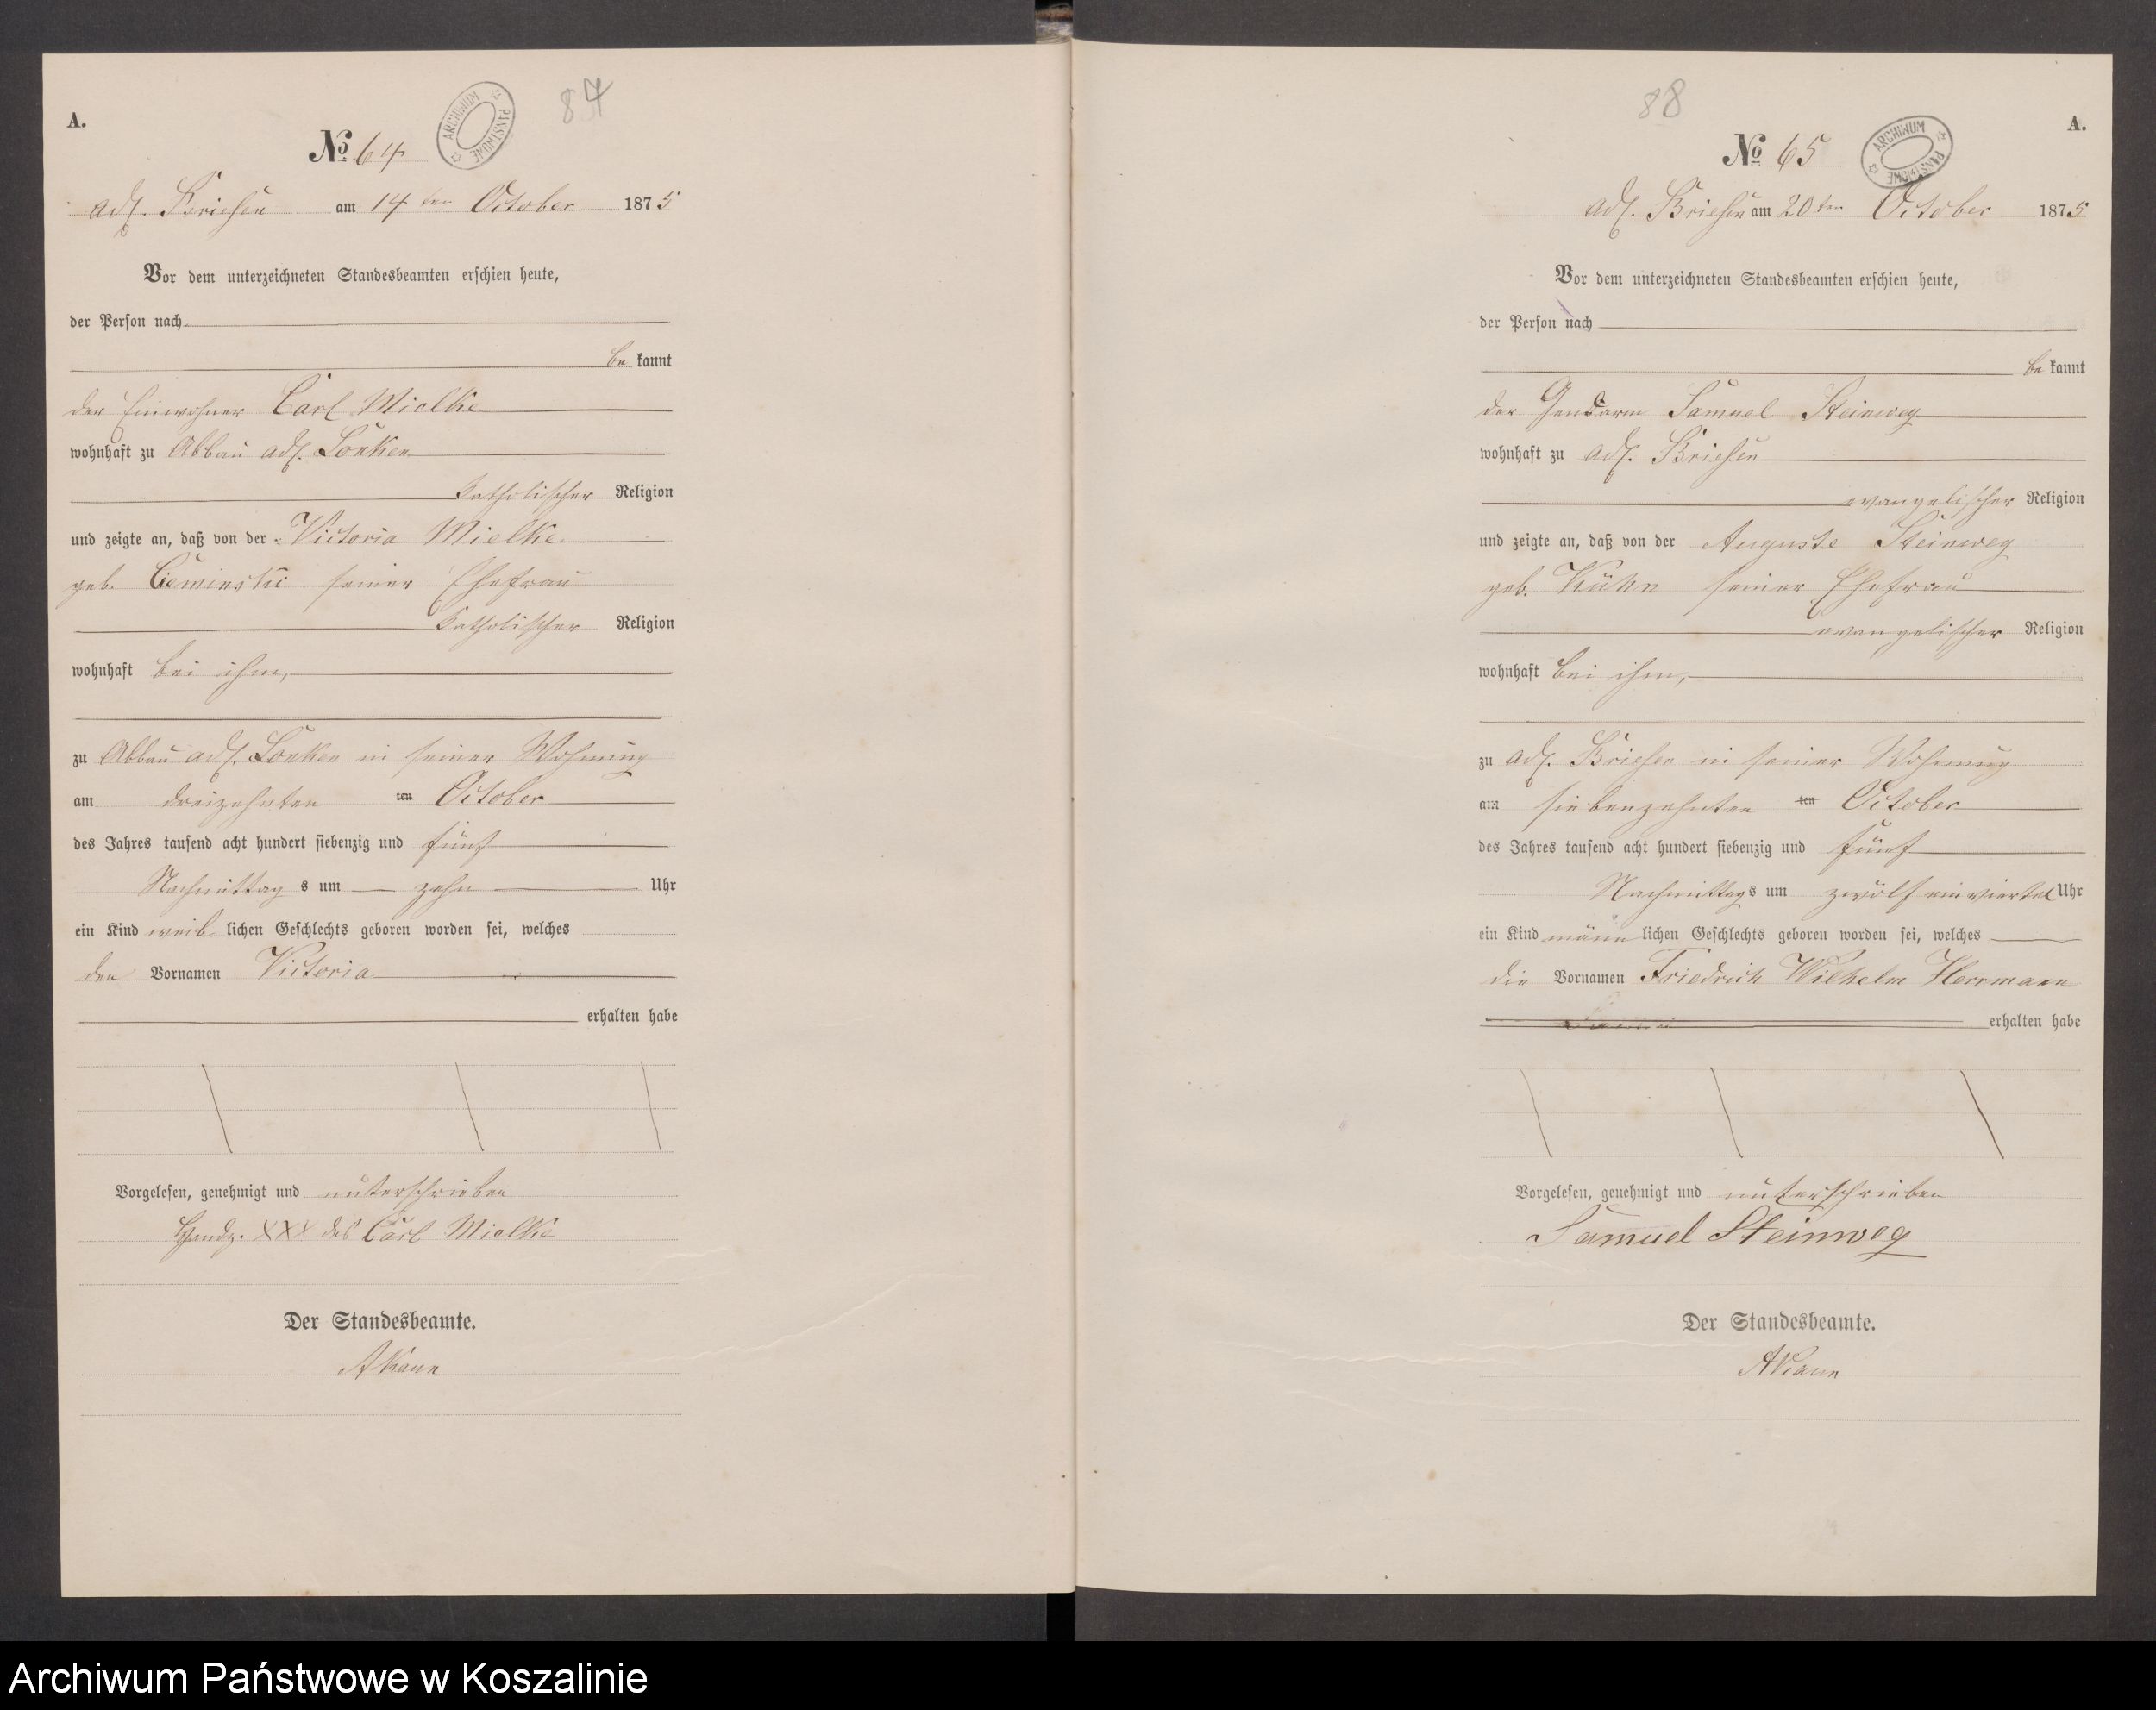 A.
84
ARCHIWUM PAŃSTWOWE
No 64
adl. Briesen am 14ten October 1875
Vor dem unterzeichneten Standesbeamten erschien heute,
der Person nach
bekannt
der Einwohner Carl Mielke
wohnhaft zu Abbau adl. Lonken
katholischer Religion
und zeigte an, daß von der Victoria Mielke
geb. Cieminski seiner Ehefrau
katholischer Religion
wohnhaft bei ihm,
zu Abbau adl. Lonken in seiner Wohnung
am dreizehnten ten October
des Jahres tausend acht hundert siebenzig und fünf
Nachmittags um zehn Uhr
ein Kind weiblichen Geschlechts geboren worden sei, welches
den Vornamen Victoria
erhalten habe
Vorgelesen, genehmigt und unterschrieben
Handz. XXX des Carl Mielke
Der Standesbeamte.
88
A.
No 65
ARCHIWUM PAŃSTWOWE
adl. Briesen am 20ten October 1875
Vor dem unterzeichneten Standesbeamten erschien heute,
der Person nach
bekannt
der Gendarm Samuel Steinweg
wohnhaft zu adl. Briesen
evangelischer Religion
und zeigte an, daß von der Auguste Steinweg
geb. Kühn seiner Ehefrau
evangelischer Religion
wohnhaft bei ihm,
zu adl. Briesen in seiner Wohnung
am siebenzehnten ten October
des Jahres tausend acht hundert siebenzig und fünf
Nachmittags um zwölf einviertel Uhr
ein Kind männlichen Geschlechts geboren worden sei, welches
die Vornamen Friedrich Wilhelm Herrmann
erhalten habe
Vorgelesen, genehmigt und unterschrieben
Samuel Steinweg
Der Standesbeamte.
Archiwum Państwowe w Koszalinie